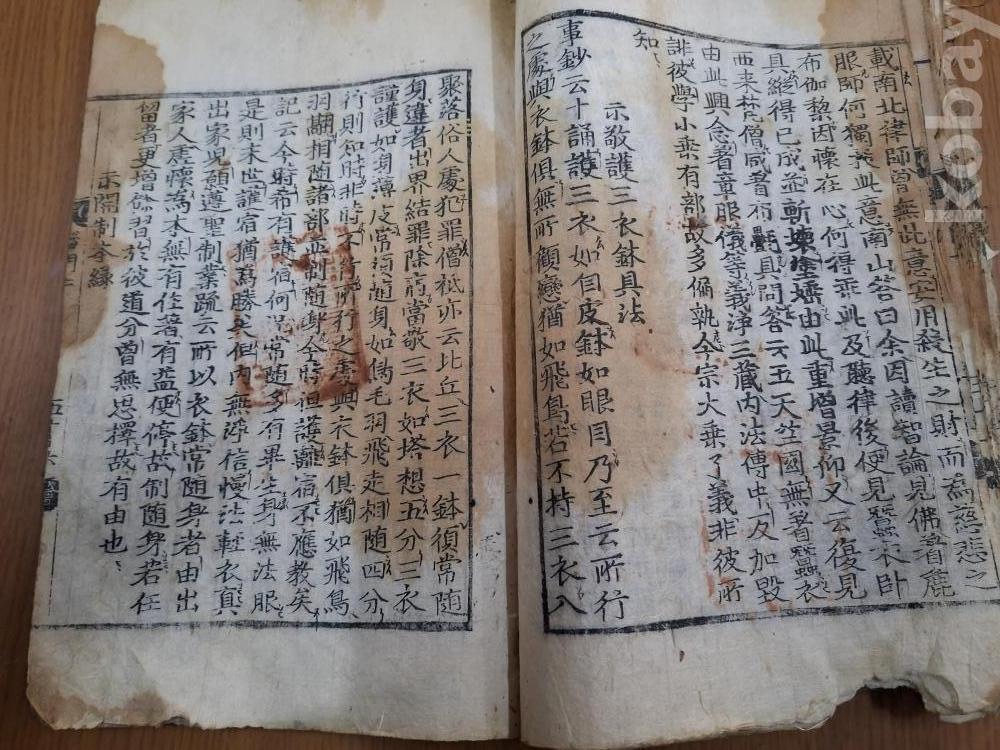 載南北律師曾無此意安用殺生之財而為慈悲之
服師何獨秉此意南山答曰余因讀智論見佛著麁
布伽黎因懷在心何得乖此及聽律後便見蠶衣臥
具縱得已成並斬壞塗埵由此重增景仰又云復見
西来梵僧咸著布㲲具問答云五天竺國無著蠶衣
由此興念著章服儀等義淨三藏內法傳中反加毀
誹彼學小乘有部故多偏執今宗大乘了義非彼所
知
示敬護三衣鉢具法
事鈔云十誦護三衣如自皮鉢如眼目乃至云所行
之處與衣鉢俱無所顧戀猶如飛鳥若不持三衣入
聚落俗人處犯罪僧祇亦云比丘三衣一鉢須常隨
身違者出界結罪除病當敬三衣如塔想五分三衣
謹護如身薄皮常須隨身如鳥毛羽飛走相隨四分
行則知時非時不行所行之處與衣鉢俱猶如飛鳥
羽翮相隨諸部並制隨身今時但護離宿不應教矣
記云今時希有護宿何況常隨多有畢生身無法服
是則末世護宿猶為勝矣但內無淨信慢法輕衣真
出家兒願遵聖制業疏云所以衣鉢常隨身者由出
家人虛懷為本無有住著有益便停故制隨身若任
留者更增餘習於彼道分曾無思擇故有由也
示開制本緣
kobay